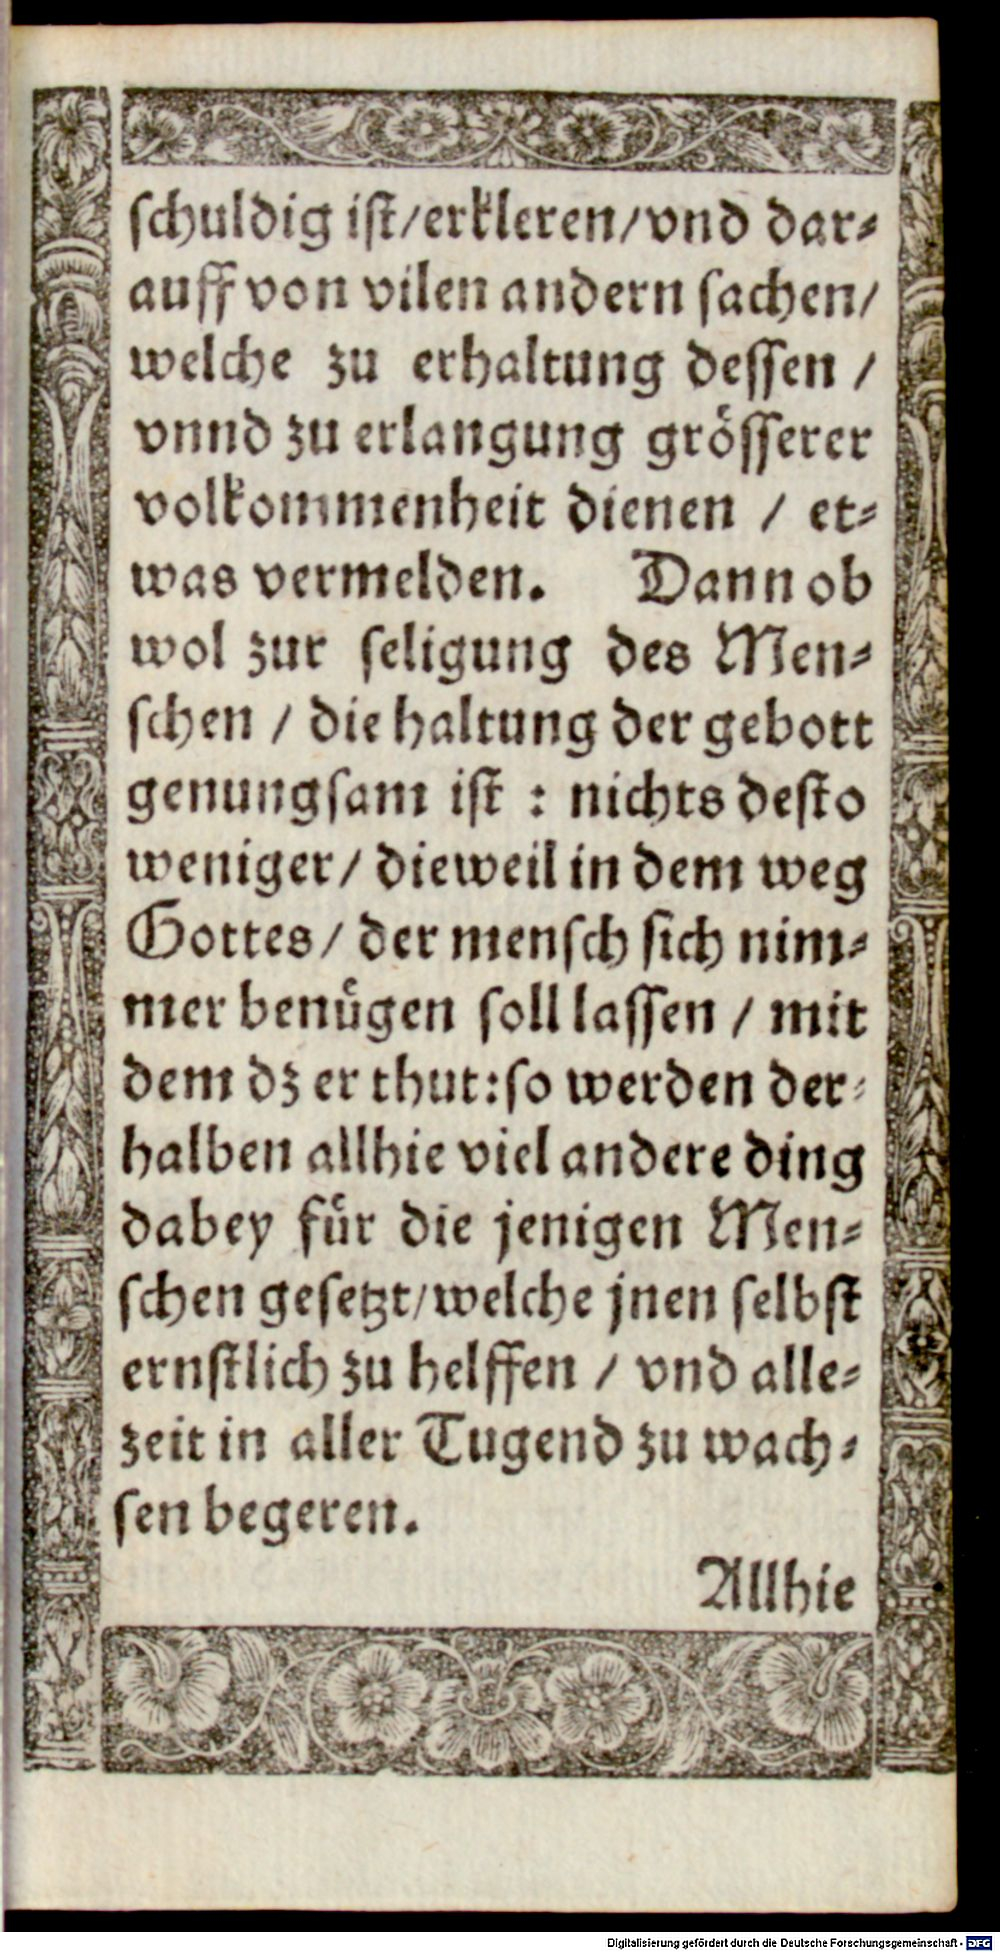 schuldig ist/erkleren/vnd dar⸗
auff von vilen andern sachen/
welche zu erhaltung dessen /
vnnd zu erlangung grösserer
volkommenheit dienen / et⸗
was vermelden. Dann ob
wol zur seligung des Men⸗
schen / die haltung der gebott
genungsam ist : nichts desto
weniger/ dieweil in dem weg
Gottes/ der mensch sich nim⸗
mer benuͤgen soll lassen / mit
dem dz er thut:so werden der⸗
halben allhie viel andere ding
dabey fuͤr die jenigen Men⸗
schen gesetzt/welche jnen selbst
ernstlich zu helffen / vnd alle⸗
zeit in aller Tugend zu wach⸗
sen begeren.
Allhie
Digitalisierung gefördert durch die Deutsche Forschungsgemeinschaft - DFG